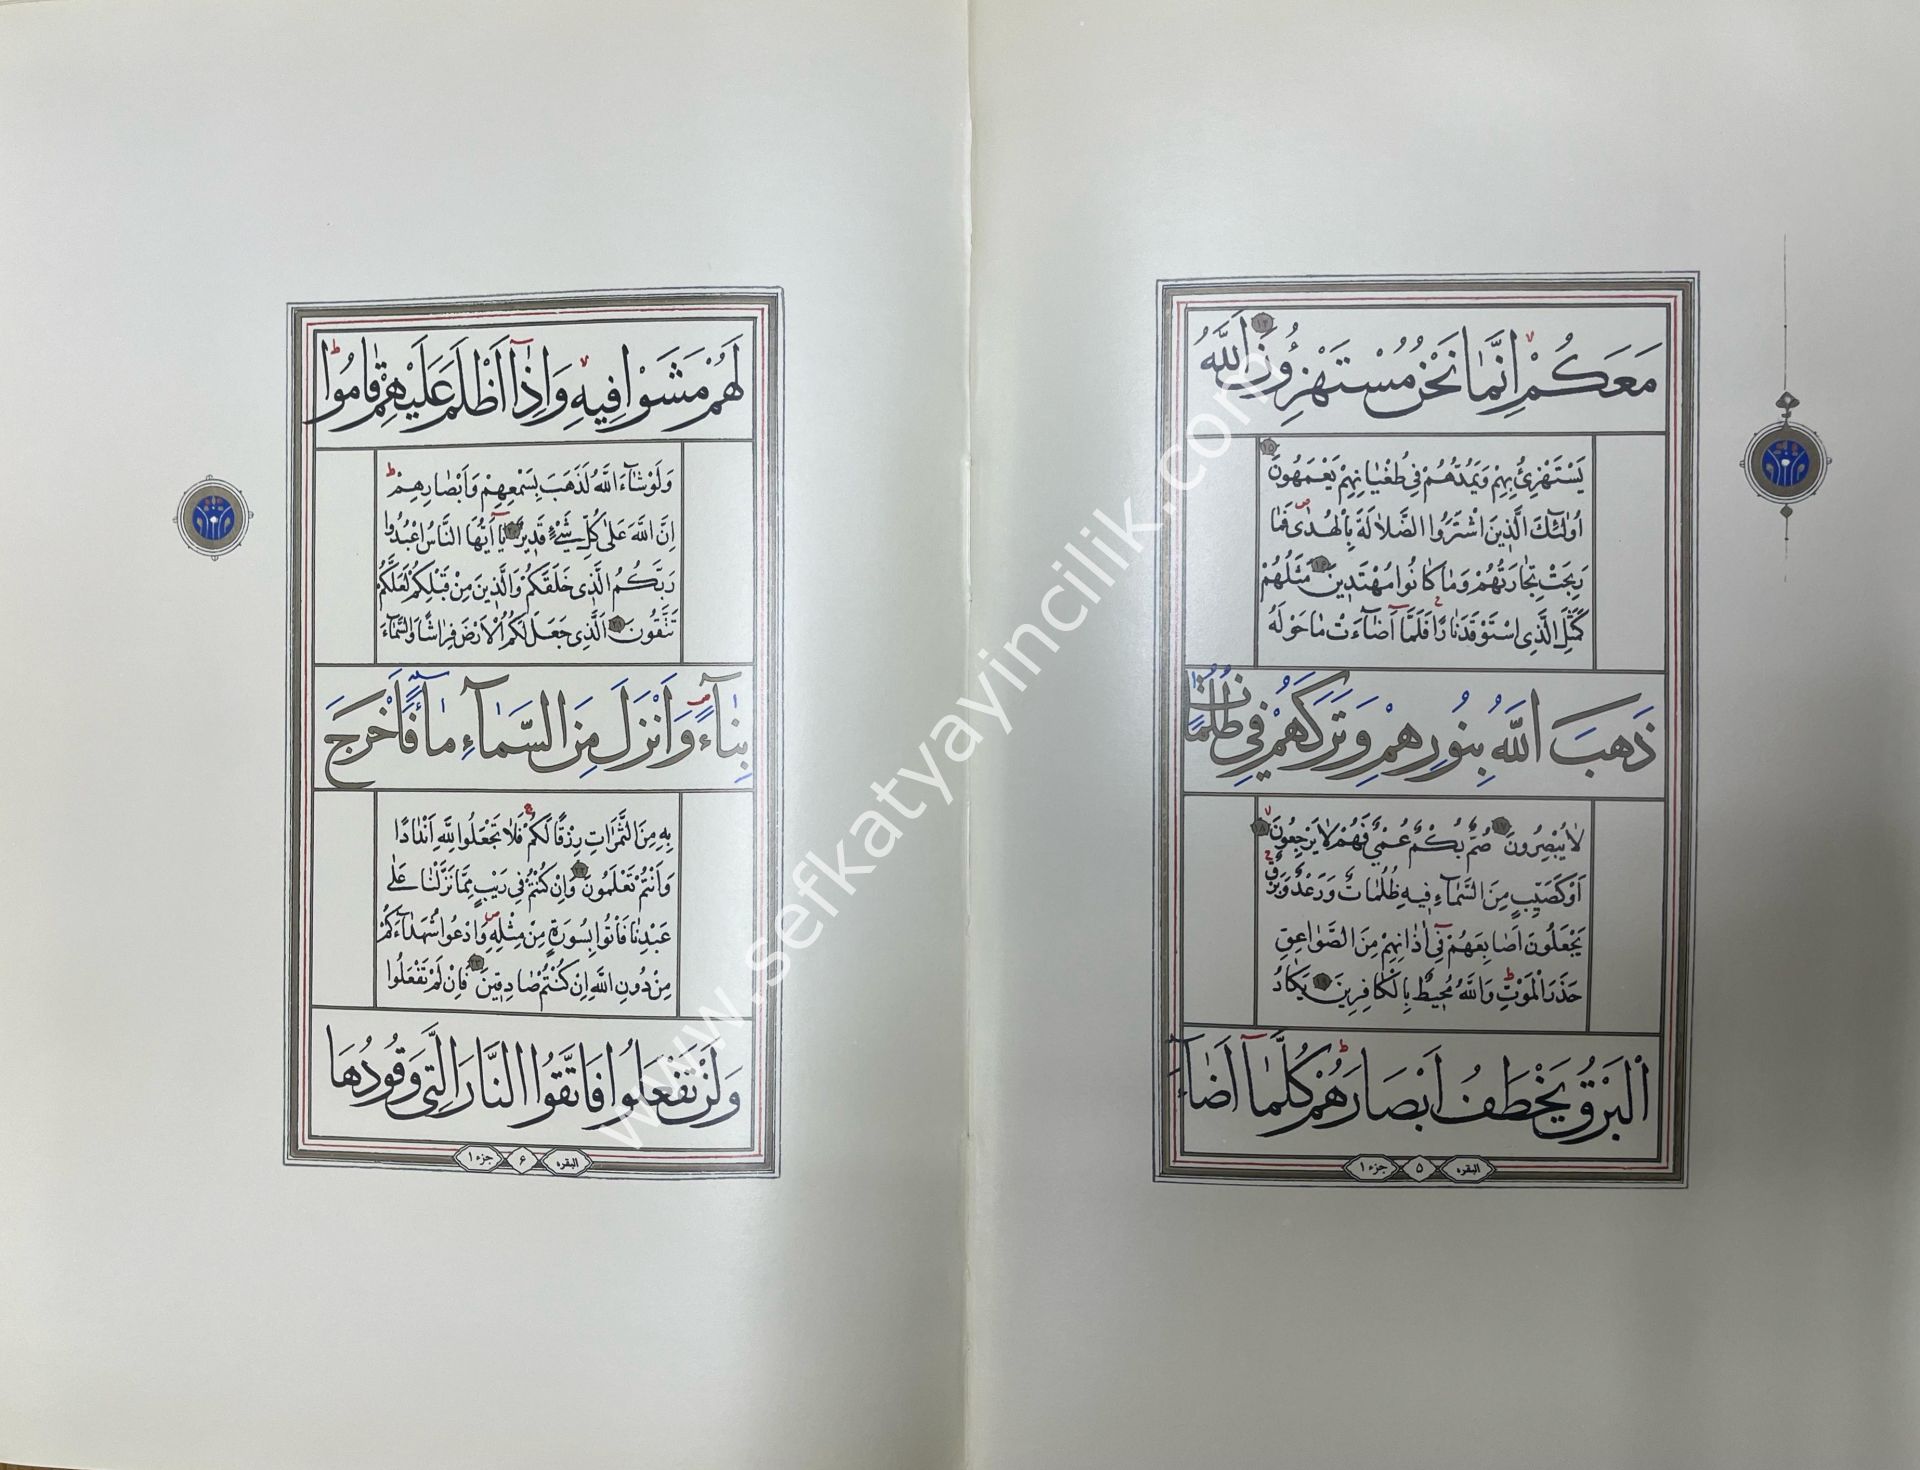 مَعَكُمْ اِنَّمَا نَحْنُ مُسْتَهْزِؤُنَ ١٤ اَللّٰهُ
يَسْتَهْزِئُ بِهِمْ وَيَمُدُّهُمْ فِي طُغْيَانِهِمْ يَعْمَهُونَ ١٥
اُولٰئِكَ الَّذِينَ اشْتَرَوُا الضَّلَالَةَ بِالْهُدٰى فَمَا
رَبِحَتْ تِجَارَتُهُمْ وَمَا كَانُوا مُهْتَدِينَ ١٦ مَثَلُهُمْ
كَمَثَلِ الَّذِي اسْتَوْقَدَ نَارًا فَلَمَّا اَضَاءَتْ مَا حَوْلَهُ
ذَهَبَ اللّٰهُ بِنُورِهِمْ وَتَرَكَهُمْ فِي ظُلُمَاتٍ
لَا يُبْصِرُونَ ١٧ صُمٌّ بُكْمٌ عُمْيٌ فَهُمْ لَا يَرْجِعُونَ ١٨
اَوْ كَصَيِّبٍ مِنَ السَّمَاءِ فِيهِ ظُلُمَاتٌ وَرَعْدٌ وَبَرْقٌ
يَجْعَلُونَ اَصَابِعَهُمْ فِي اٰذَانِهِمْ مِنَ الصَّوَاعِقِ
حَذَرَ الْمَوْتِ وَاللّٰهُ مُحِيطٌ بِالْكَافِرِينَ ١٩ يَكَادُ
الْبَرْقُ يَخْطَفُ اَبْصَارَهُمْ كُلَّمَا اَضَاءَ
البقره ۵ جزء ١
لَهُمْ مَشَوْا فِيهِ وَاِذَا اَظْلَمَ عَلَيْهِمْ قَامُوا
وَلَوْ شَاءَ اللّٰهُ لَذَهَبَ بِسَمْعِهِمْ وَاَبْصَارِهِمْ
اِنَّ اللّٰهَ عَلٰى كُلِّ شَيْءٍ قَدِيرٌ ٢٠ يَا اَيُّهَا النَّاسُ اعْبُدُوا
رَبَّكُمُ الَّذِي خَلَقَكُمْ وَالَّذِينَ مِنْ قَبْلِكُمْ لَعَلَّكُمْ
تَتَّقُونَ ٢١ اَلَّذِي جَعَلَ لَكُمُ الْاَرْضَ فِرَاشًا وَالسَّمَاءَ
بِنَاءً وَاَنْزَلَ مِنَ السَّمَاءِ مَاءً فَاَخْرَجَ
بِهِ مِنَ الثَّمَرَاتِ رِزْقًا لَكُمْ فَلَا تَجْعَلُوا لِلّٰهِ اَنْدَادًا
وَاَنْتُمْ تَعْلَمُونَ ٢٢ وَاِنْ كُنْتُمْ فِي رَيْبٍ مِمَّا نَزَّلْنَا عَلٰى
عَبْدِنَا فَاْتُوا بِسُورَةٍ مِنْ مِثْلِهِ وَادْعُوا شُهَدَاءَكُمْ
مِنْ دُونِ اللّٰهِ اِنْ كُنْتُمْ صَادِقِينَ ٢٣ فَاِنْ لَمْ تَفْعَلُوا
وَلَنْ تَفْعَلُوا فَاتَّقُوا النَّارَ الَّتِي وَقُودُهَا
البقره ۶ جزء ١
www.sefkatyayincilik.com